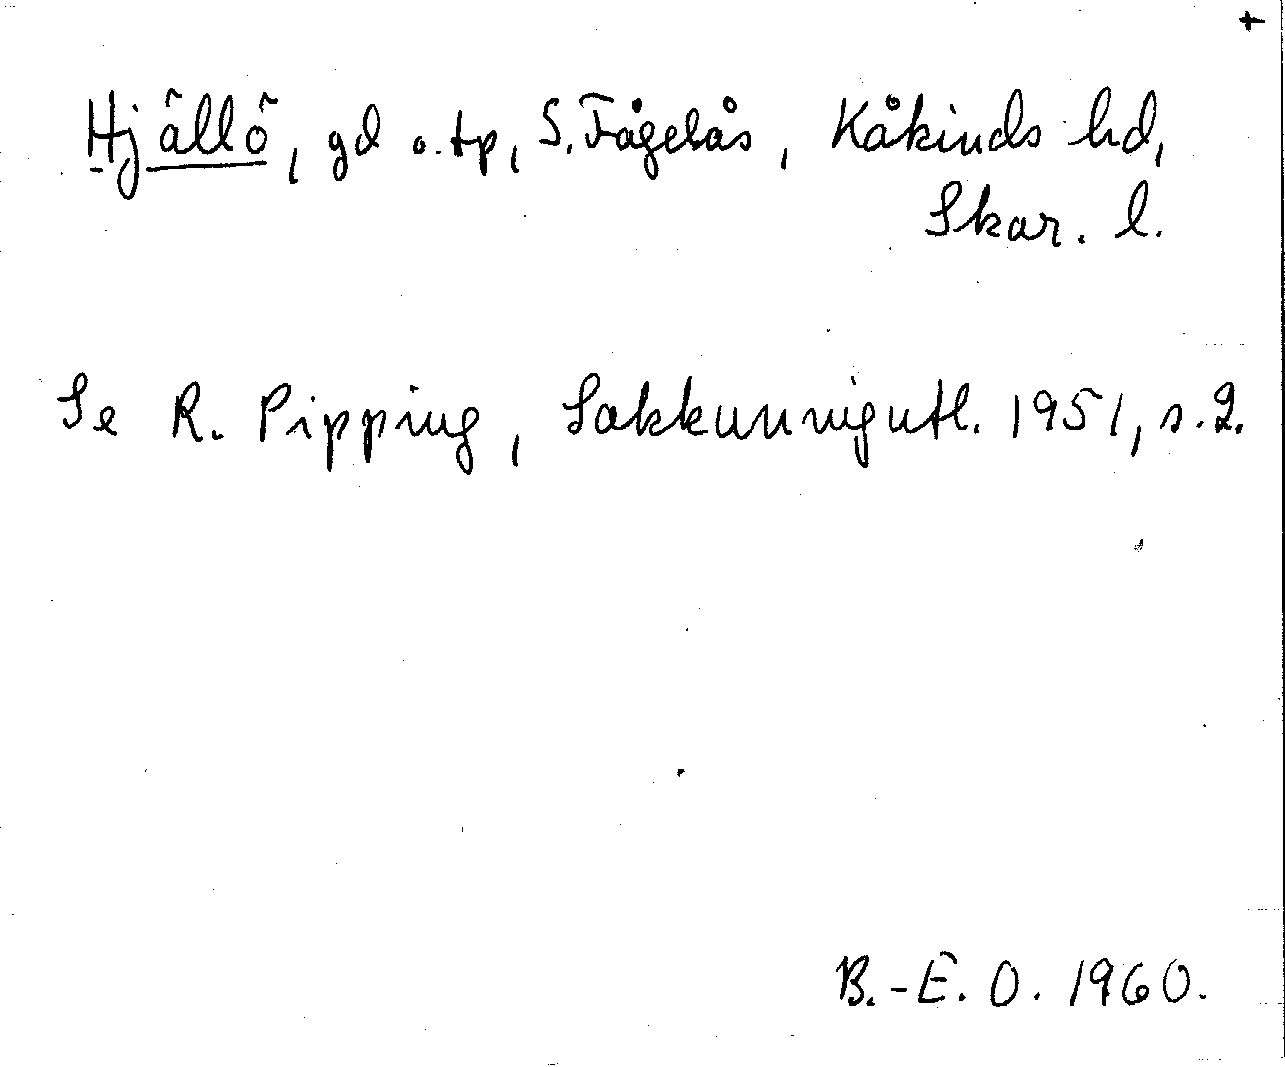 +
Hjällö, gd o. tp, S. Fågelås, Kåkinds hd,
Skar. l.
Se R. Pipping, Sakkunnigutl. 1951, s. 2.
B.-E. O. 1960.